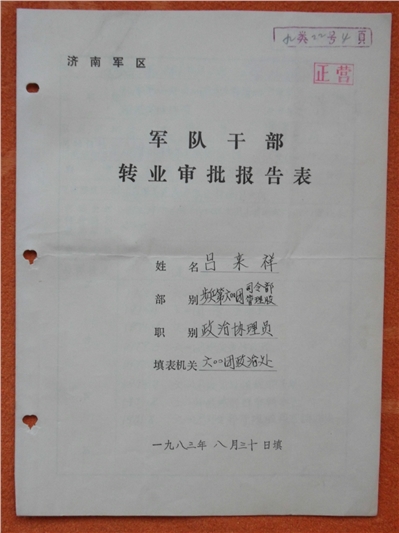 济南军区
正营
军队干部
转业审批报告表
姓名 吕来祥
部别 步兵第六〇〇团司令部管理股
职别 政治协理员
填表机关 六〇〇团政治处
一九八三年八月三十日填